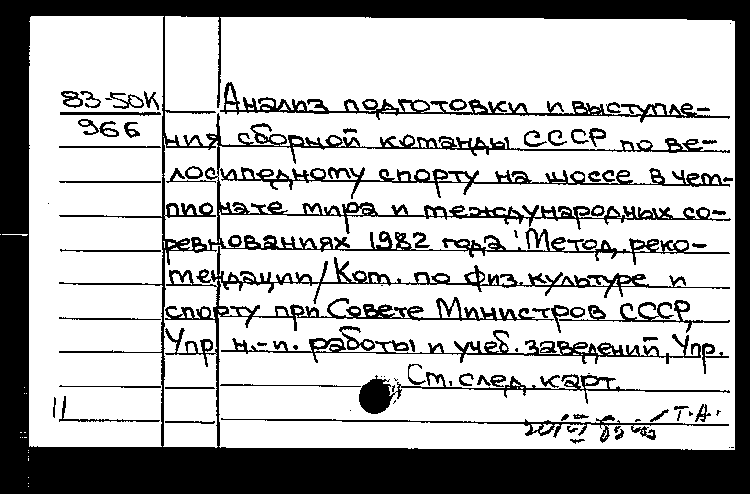 83-50К Анализ подготовки и выступле-
966 ния сборной команды СССР по ве-
лосипедному спорту на шоссе в чем-
пионате мира и международных со-
ревнованиях 1982 года : Метод. реко-
мендации / Ком. по физ. культуре и
спорту при Совете Министров СССР,
Упр. н.-и. работы и учеб. заведений, Упр.
См. след. карт.
11 Т.А.